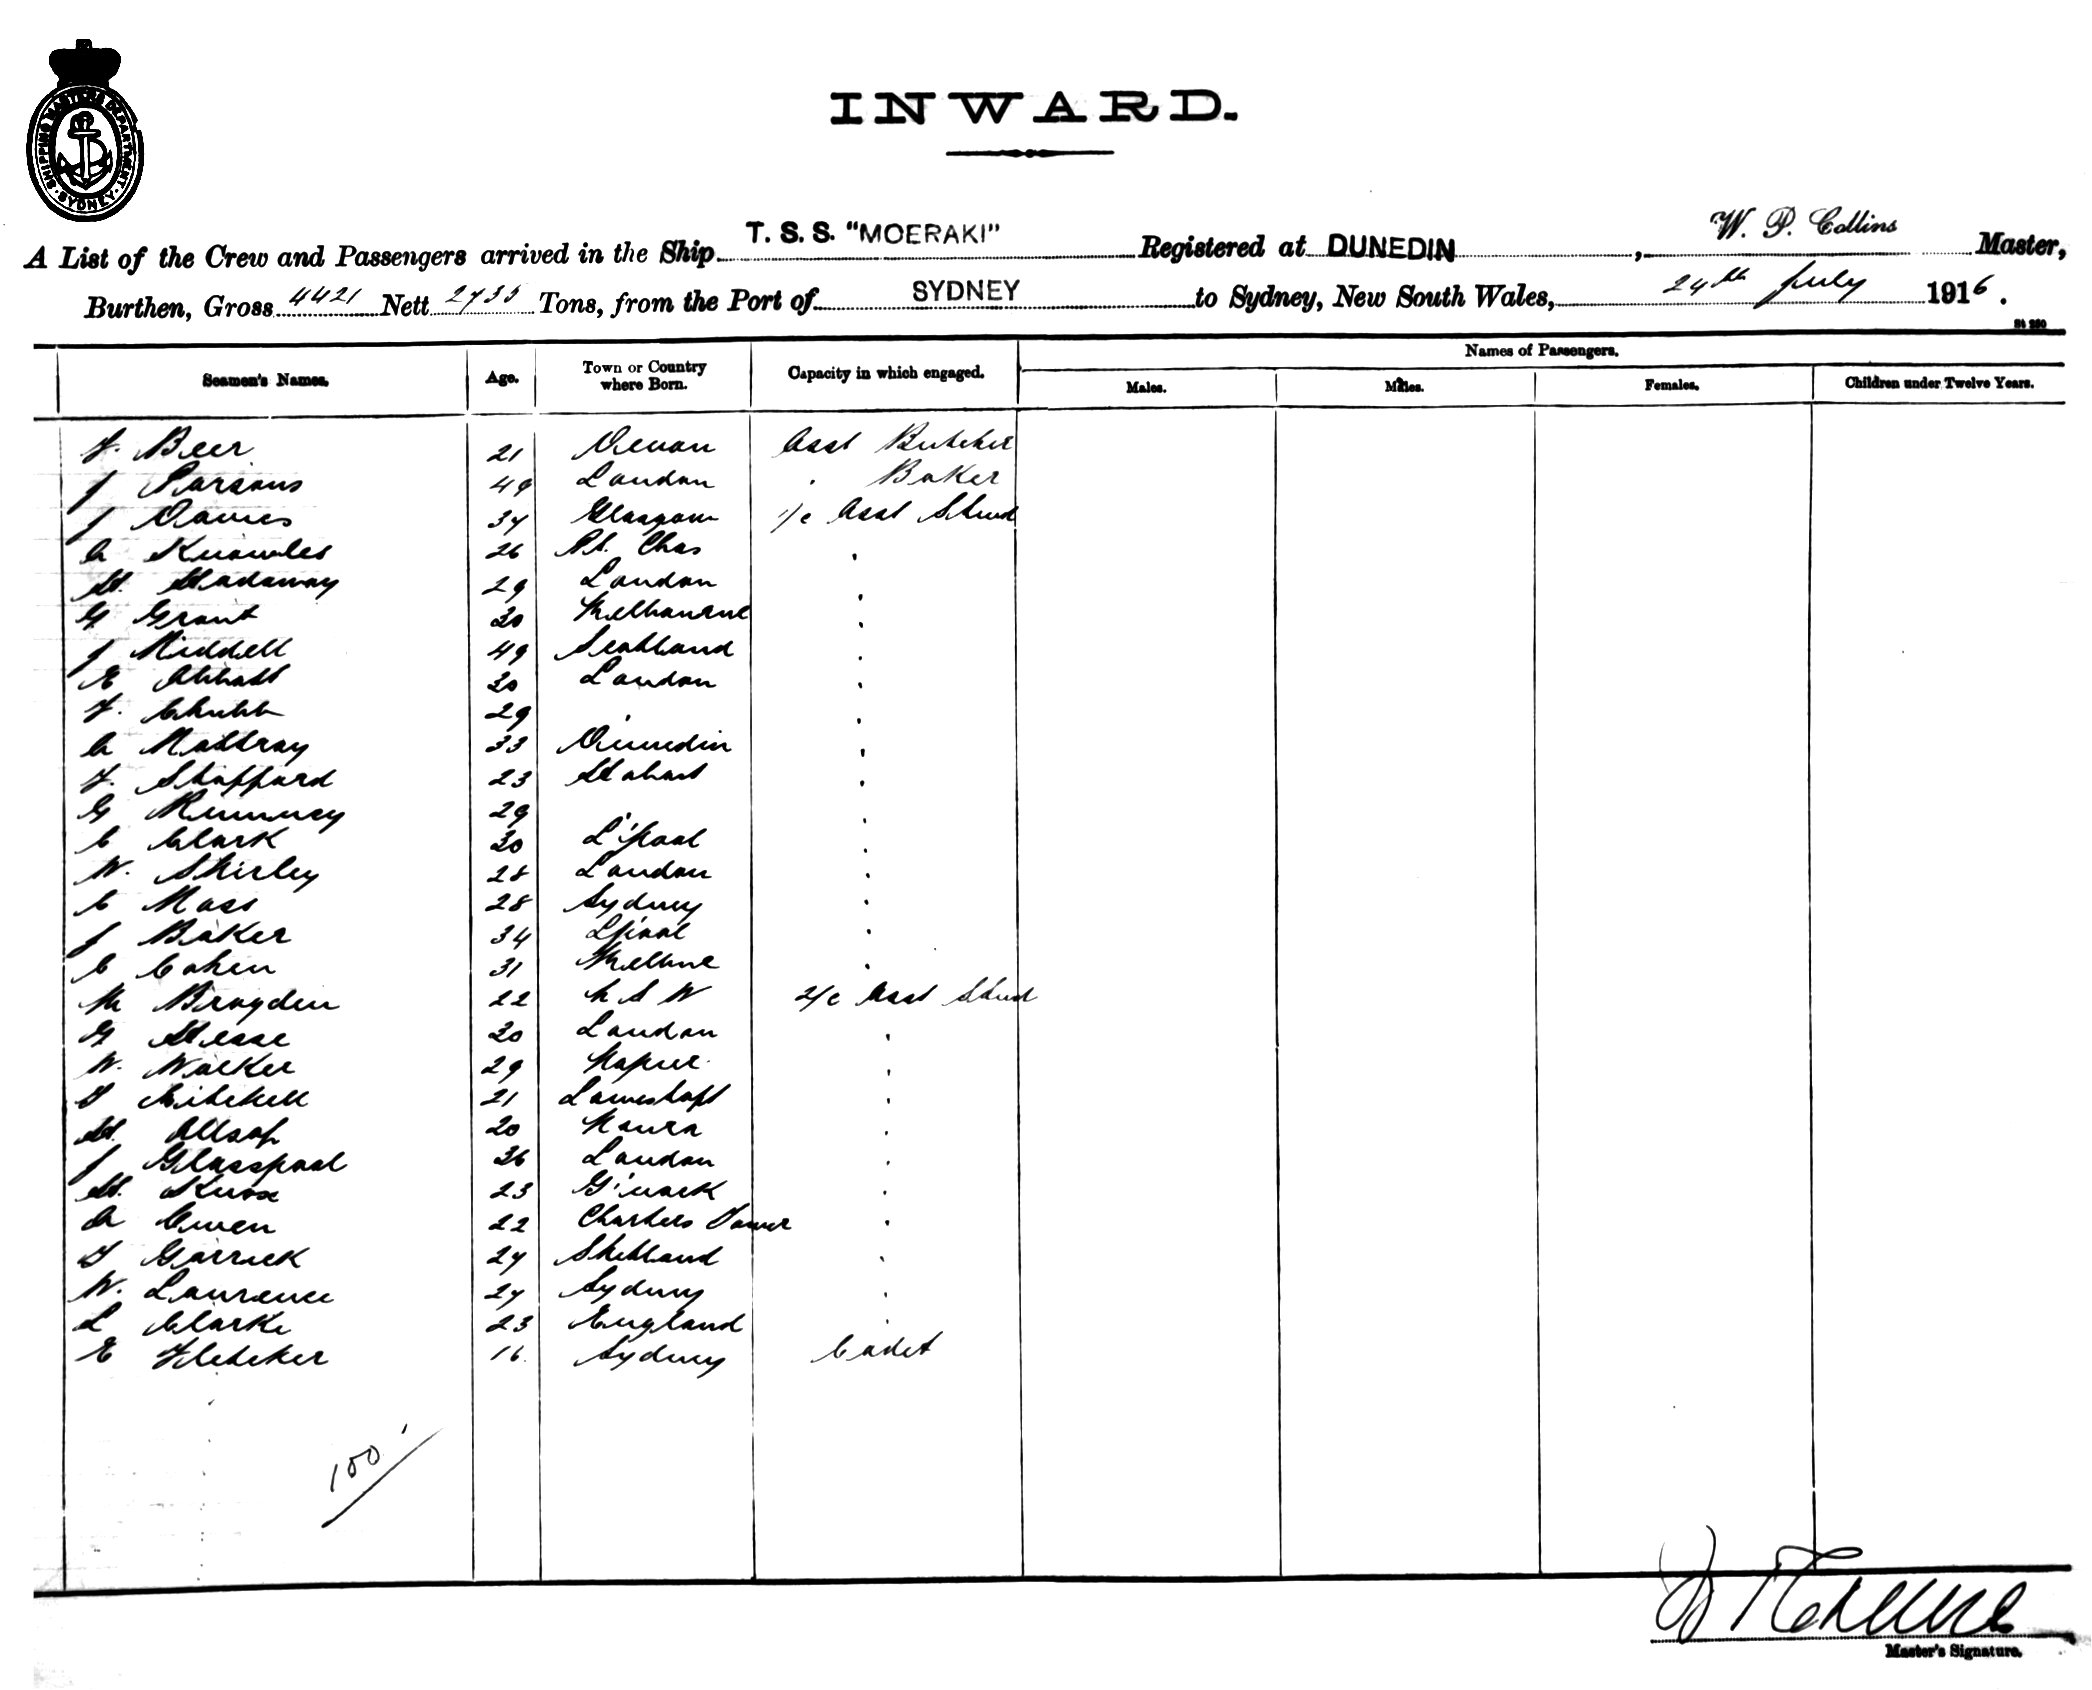 SHIPPING MASTERS DEPARTMENT · SYDNEY ·
INWARD.
A List of the Crew and Passengers arrived in the Ship T. S. S. "MOERAKI" Registered at DUNEDIN, W. P. Collins Master,
Burthen, Gross 4421 Nett 2735 Tons, from the Port of SYDNEY to Sydney, New South Wales, 24th July 1916.
St 280
Names of Passengers.
Seamen's Names. Age. Town or Country where Born. Capacity in which engaged. Males. Males. Females. Children under Twelve Years.
F. Beer 21 Devon Asst Butcher
J Parsons 49 London " Baker
J Davies 34 Glasgow 1/c Asst Stwd
A Knowles 26 Pt. Chas "
H. Hadaway 29 London "
G Grant 30 Melbourne "
J Riddell 49 Scotland "
E Abbott 30 London "
F. Chubb 29 " "
A Mottray 33 Dunedin "
F. Shoppard 23 Hobart "
G Rumney 29 " "
C Clark 30 L'pool "
W. Shirley 28 London "
C Moss 28 Sydney "
J Baker 34 L'pool "
C Cohen 31 Melbne "
M Brayden 22 N S W 2/c Asst Stwd
G Hesse 30 London "
W. Walker 29 Napier "
D Mitchell 21 Lowestoft "
H. Allsop 20 Nowra "
J Glasspool 36 London "
H. Knox 23 G'nock "
A Owen 22 Charters Tower "
T Garrick 27 Shetland "
W. Laurence 27 Sydney "
L Clarke 23 England "
E Fletcher 16 Sydney Cadet
100
Master's Signature.